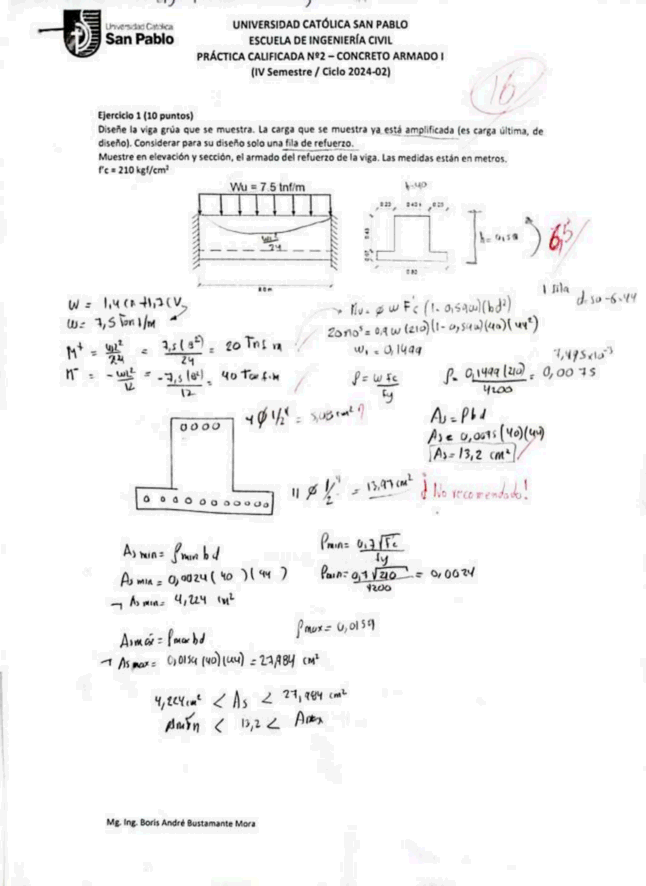 Universidad Católica
San Pablo
UNIVERSIDAD CATÓLICA SAN PABLO
ESCUELA DE INGENIERÍA CIVIL
PRÁCTICA CALIFICADA Nº2 – CONCRETO ARMADO I
(IV Semestre / Ciclo 2024-02)
16
Ejercicio 1 (10 puntos)
Diseñe la viga grúa que se muestra. La carga que se muestra ya está amplificada (es carga última, de
diseño). Considerar para su diseño solo una fila de refuerzo.
Muestre en elevación y sección, el armado del refuerzo de la viga. Las medidas están en metros.
f'c = 210 kgf/cm²
Wu = 7.5 tnf/m
wl²
24
8.0 m
b=40
0.20 0.40 0.20
6,5
1 fila
d=50-6=44
W = 1,4CM+1,7CV
W= 7,5 Ton f/m
M⁺ = wl²/24 = 7,5(8²)/24 = 20 Tnf.m
M⁻ = -wl²/12 = -7,5(8²)/12 = 40 Tonf.m
Mu= φ w F'c (1-0,59w)(bd²)
20x10⁵=0,9w(210)(1-0,59w)(40)(44²)
w₁ = 0,1499
ρ = w f'c/fy
ρ= 0,1499(210)/4200 = 0,0075
7,495x10⁻³
As = ρbd
As= 0,0075(40)(44)
As=13,2 cm²
4 φ 1/2" = 5,08 cm²
11 φ 1/2" = 13,97 cm² ¡No recomendado!
As min= ρmin bd
As min= 0,0024(40)(44)
→ As min= 4,224 cm²
ρmin= 0,7√f'c/fy
ρmin= 0,7√210/4200 = 0,0024
As máx= ρmax bd
ρmax= 0,0159
→ As max= 0,0159(40)(44)=27,984 cm²
4,224cm² < As < 27,984 cm²
Asmín < 13,2 < Asmax
Mg. Ing. Boris André Bustamante Mora